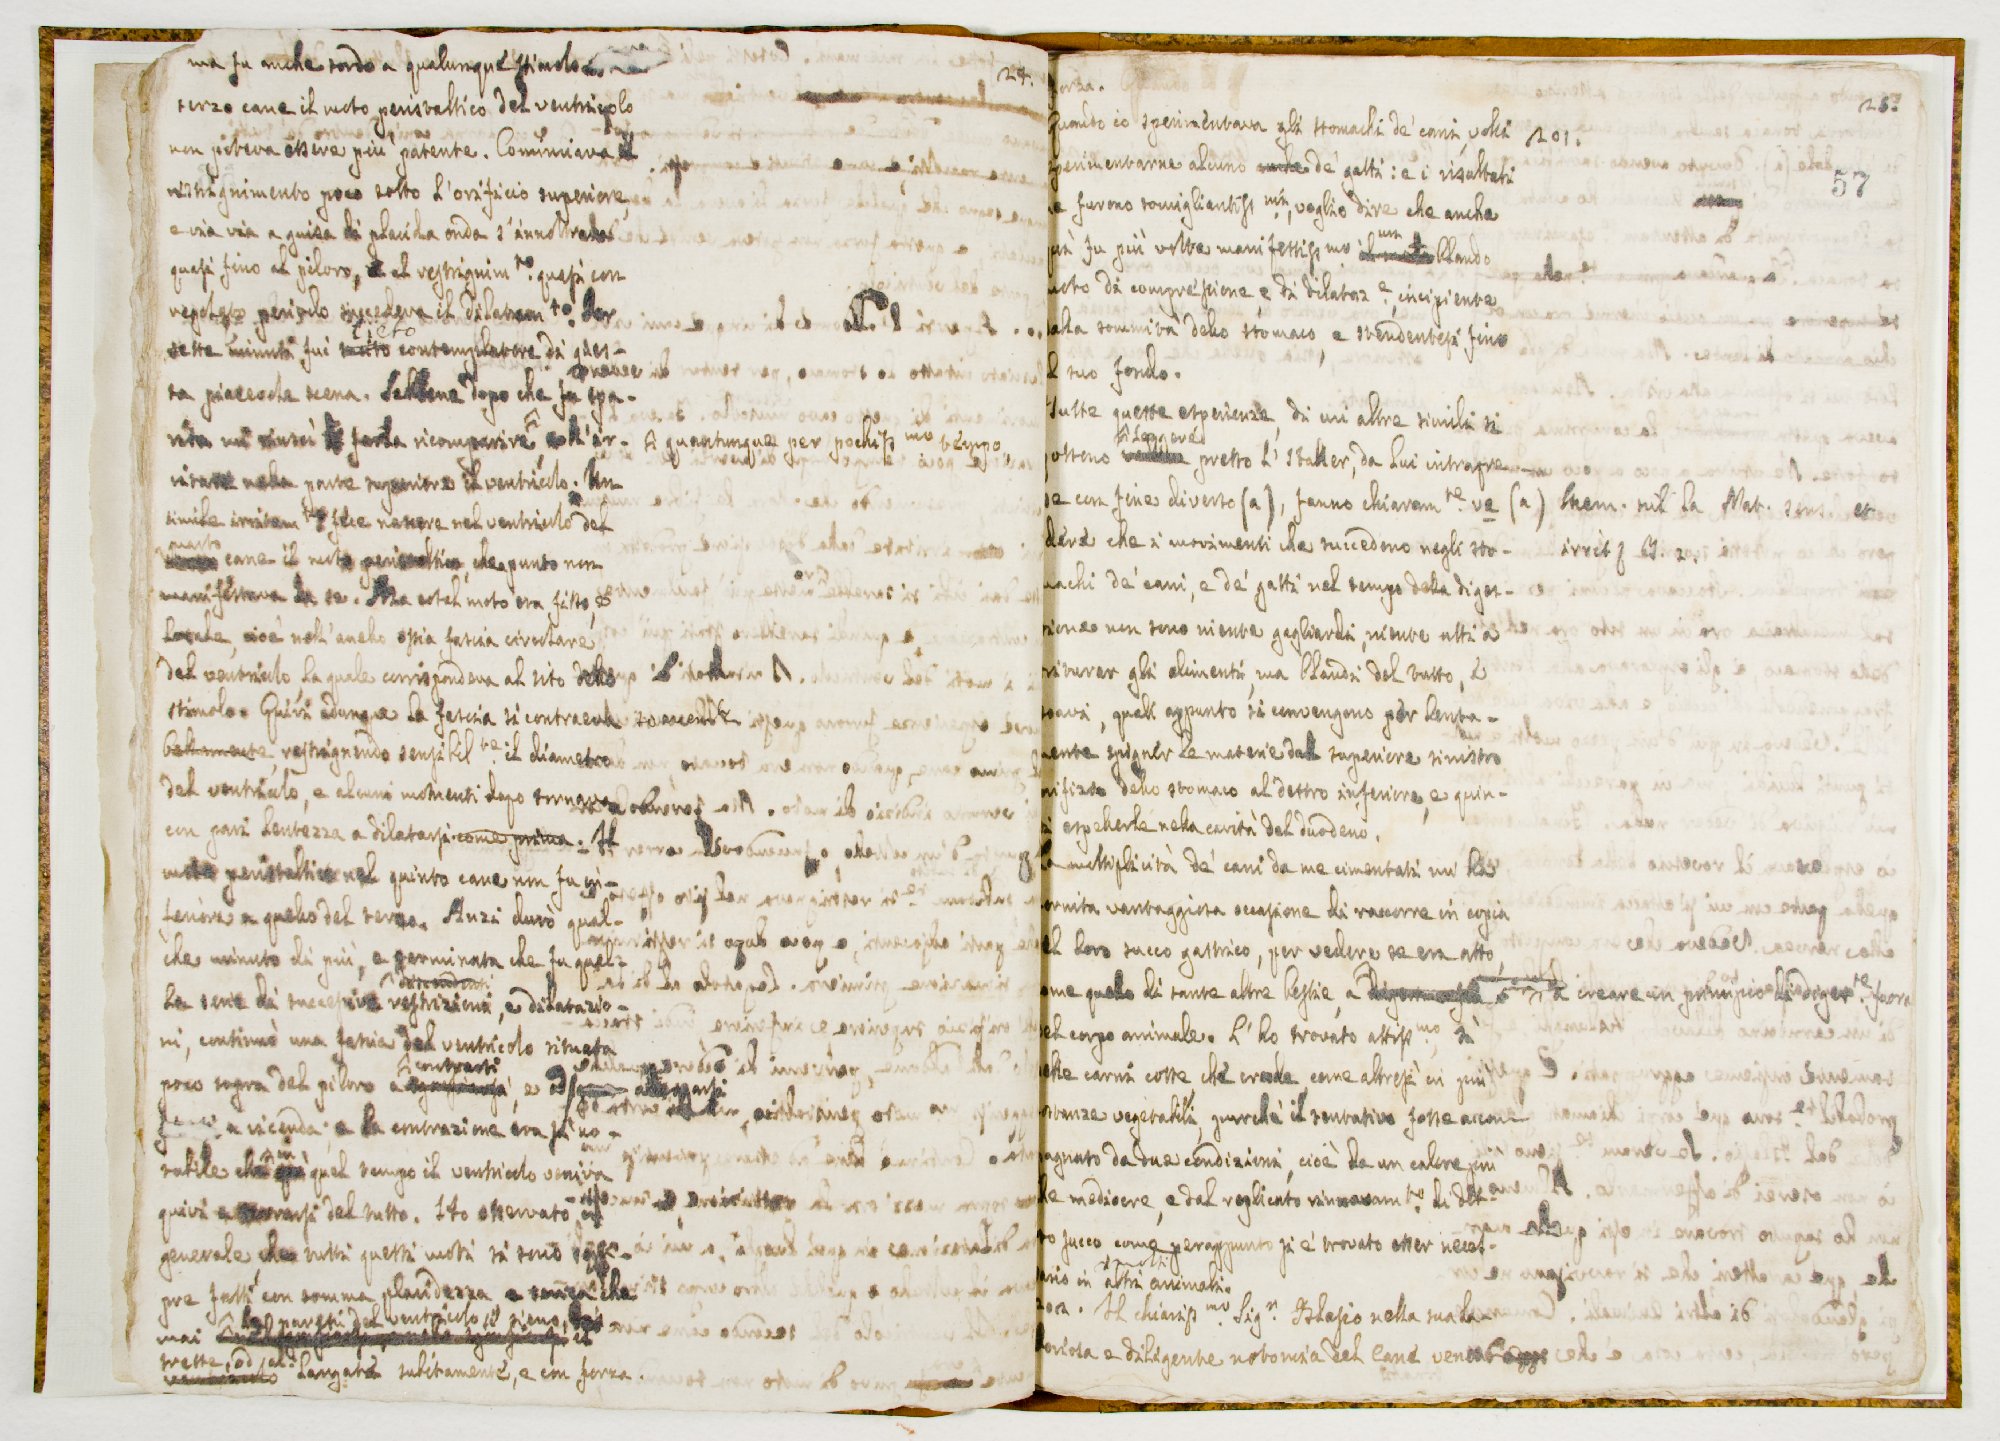 24.
ma fu anche sordo a qualunque stimolo
terzo cane il moto peristaltico del ventricolo
non poteva essere più patente. Cominciava il
ristrignimento poco sotto l'orificio superiore,
e via via a guisa di placida onda s'innoltrava
quasi fino al piloro, e al restrignim.to quasi con
regolato periodo succedeva il dilatam.to. Per
sette minuti fui lieto contemplatore di ques-
ta piacevole scena. Sebbene dopo che fu spa-
rita mi riuscì farla ricomparire coll'ir-
A quantunque per pochiss.mo tempo
ritare nella parte superiore il ventricolo. Un
simile irritam.to fece nascere nel ventricolo del
cane il moto peristaltico, che punto non
manifestava da se. Ma cotel moto era fisso, e
locale, cioè nell'anello ossia fascia circolare
del ventricolo la quale corrispondeva al sito dello
stimolo. Quivi adunque la fascia si contraeva soavem.te
bellamente, restrignendo sensibil.te il diametro
del ventricolo, e alcuni momenti dopo tornava
con pari lentezza a dilatarsi come prima. Il
moto peristaltico nel quinto cane non fu in-
feriore a quello del terzo. Anzi durò qual-
che minuto di più, e terminata che fu quel-
la serie di successive restrizioni, e dilatazio-
ni, continuò una fascia del ventricolo situata
poco sopra del piloro a contrarsi, e ad allargarsi
a vicenda; e la contrazione era sì no-
tabile che in quel tempo il ventricolo veniva
quivi a serrarsi del tutto. Ho osservato in
generale, che tutti questi moti si sono sem-
pre fatti con somma placidezza e senza che
mai le pareti del ventricolo si sieno
strette, od al-
largate subitamente, e con forza.
25.
57
forza.
Quando io sperimentava gli stomachi de' cani, volli 201.
sperimentarne alcuno de' gatti: e i risultati
ne furono somigliantiss.mi, voglio dire che anche
qui fu più volte manifestiss.mo un blando
moto di compressione e di dilataz.e, incipiente
dalla sommità dello stomaco, e stendentesi fino
al suo fondo.
Tutte queste esperienze, di cui altre simili si
possono leggere presso l'Haller, da lui intrapre-
se con fine diverso (a), fanno chiaram.te ve (a) Mem. sul la Mat. sens. et
dere che i movimenti che succedono negli sto- irrit. T. 2.
machi de' cani, e de' gatti nel tempo della diges-
tione non sono niente gagliardi, niente atti a
triturar gli alimenti, ma blandi del tutto, e
soavi, quali appunto si convengono per lenta-
mente spigner le materie dal superiore sinistro
orifizio dello stomaco al destro inferiore, e quin-
di espellerle nella cavità del duodeno.
La moltiplicità de' cani da me cimentati mi ha
fornita vantaggiosa occasione di raccorre in copia
del loro succo gastrico, per vedere se era atto,
come quello di tante altre bestie, a creare un principio di diges.te fuora
del corpo animale. L'ho trovato attiss.mo, sì
nelle carni cotte che crude come altresì in più
sostanze vegetabili, purchè il tentativo fosse accom-
pagnato da due condizioni, cioè da un calore più
che mediocre, e dal replicato rinnovam.to di det-
to succo come perappunto si è trovato esser neces-
sario in altri animali.
202. Il chiariss.mo Sig.r Blasio nella sua la-
boriosa e diligente notomia del Cane